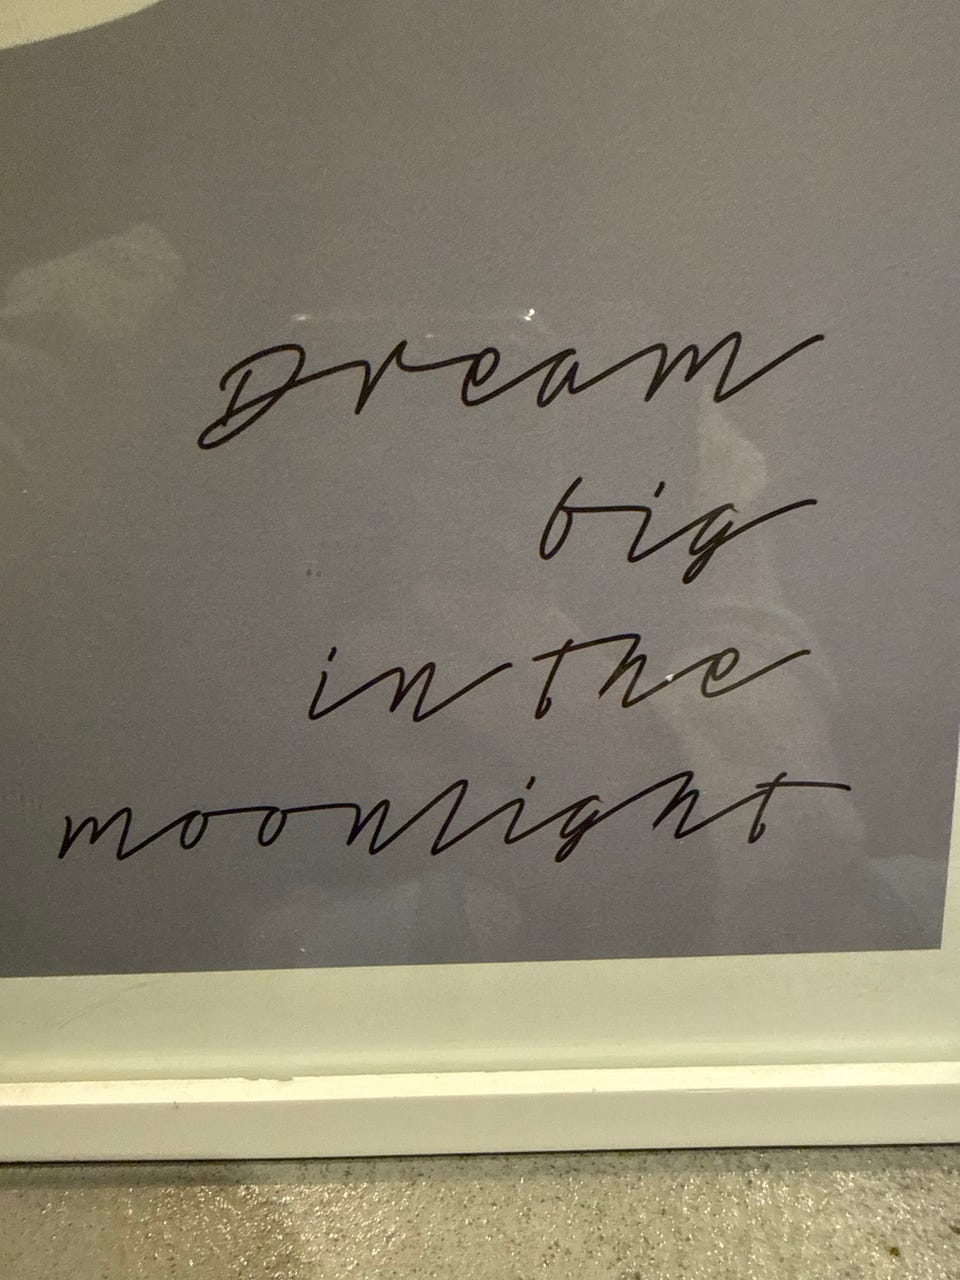 Dream
big
in the
moonlight